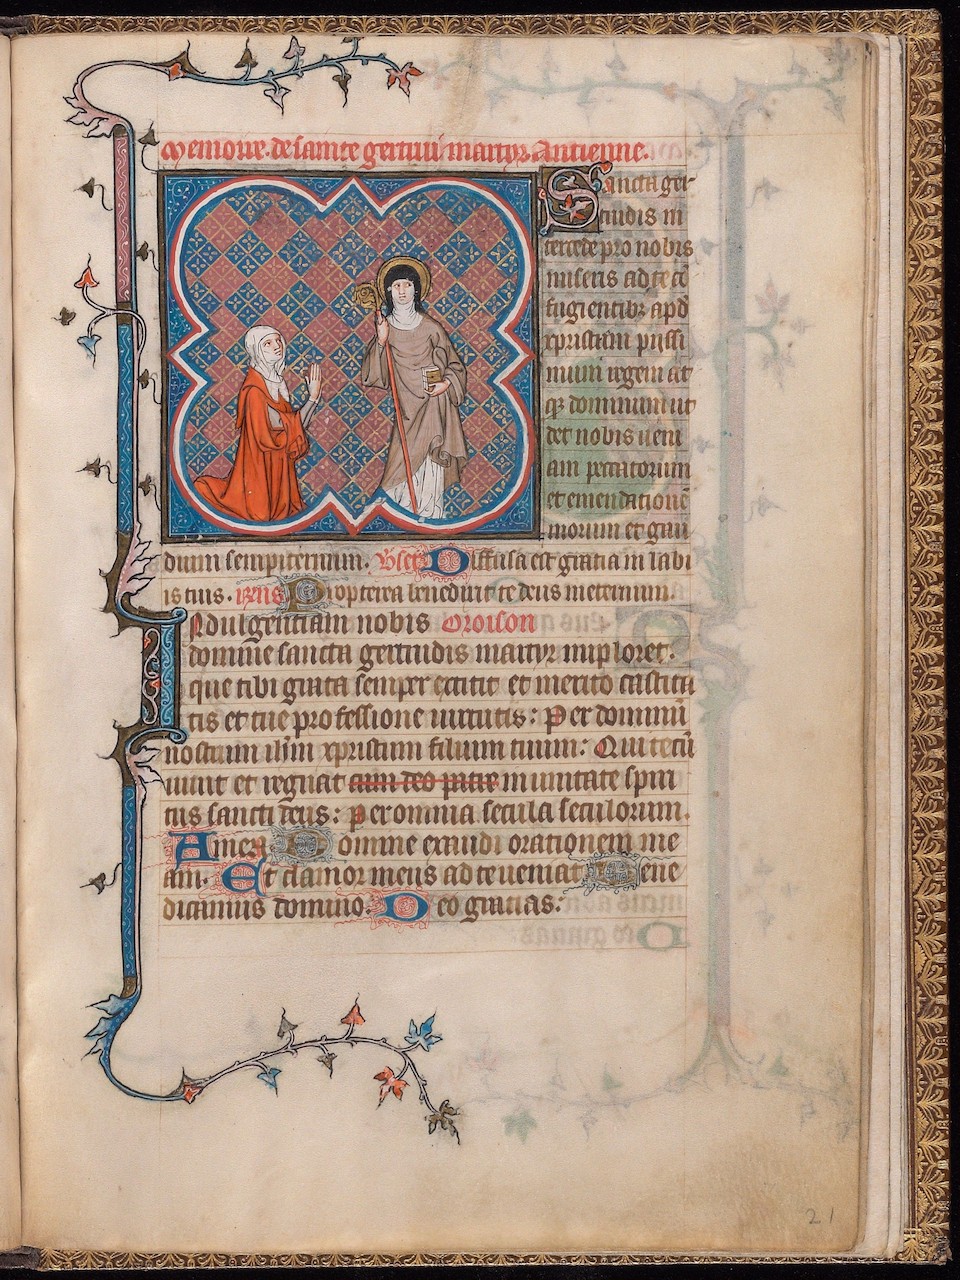 Memoire. de sainte gertrui martyr. Antienne.
Sancta ger
trudis in
tercede pro nobis
miseris ad te cō
fugientibꝫ apd
xpristum pijssi
mum regem at
qꝫ dominum ut
det nobis ueni
am peccatorum
et emendationē
morum et gau
dium sempiternum. Vset Diffusa est gratia in labi
is tuis. Propterea benedixit te deus ineternum.
Indulgentiam nobis Oroison
domine sancta gertrudis martyr imploret.
que tibi grata semper extitit et merito castita
tis et tue professione uirtutis: Per dominū
nostrum ih̄m xpristum filium tuum: Qui tecū
uiuit et regnat cum deo patre in unitate spiri
tus sancti deus: per omnia secula seculorum.
Amen Domine exaudi orationem me
am. Et clamor meus ad te ueniat Bene
dicamus domino. Deo gratias:
21